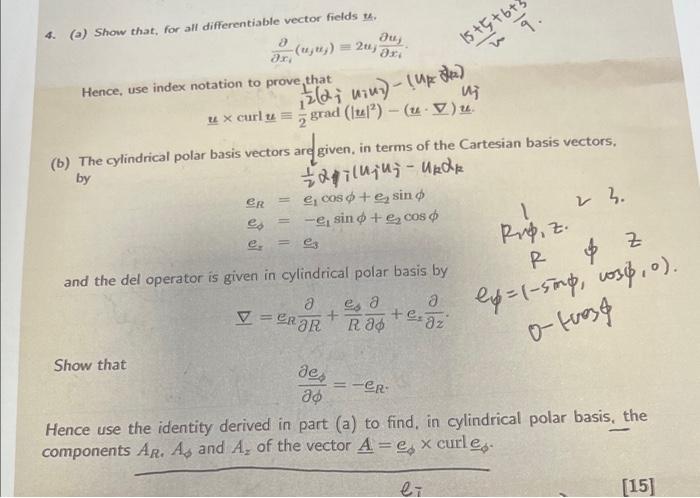 4. (a) Show that, for all differentiable vector fields u,
15+5+6+3
9.
∂/∂xᵢ (uⱼuⱼ) ≡ 2uⱼ ∂uⱼ/∂xᵢ.
Hence, use index notation to prove that
u × curl u ≡ 1/2 grad (|u|²) − (u · ∇) u.
(b) The cylindrical polar basis vectors are given, in terms of the Cartesian basis vectors,
by
e_R = e₁ cos ϕ + e₂ sin ϕ
e_ϕ = −e₁ sin ϕ + e₂ cos ϕ
e_z = e₃
1 2 3.
R, ϕ, z.
R ϕ z
and the del operator is given in cylindrical polar basis by
e_ϕ = (−sinϕ, cosϕ, 0).
∇ = e_R ∂/∂R + e_ϕ/R ∂/∂ϕ + e_z ∂/∂z.
Show that
∂e_ϕ/∂ϕ = −e_R.
Hence use the identity derived in part (a) to find, in cylindrical polar basis, the
components A_R, A_ϕ and A_z of the vector A = e_ϕ × curl e_ϕ.
[15]